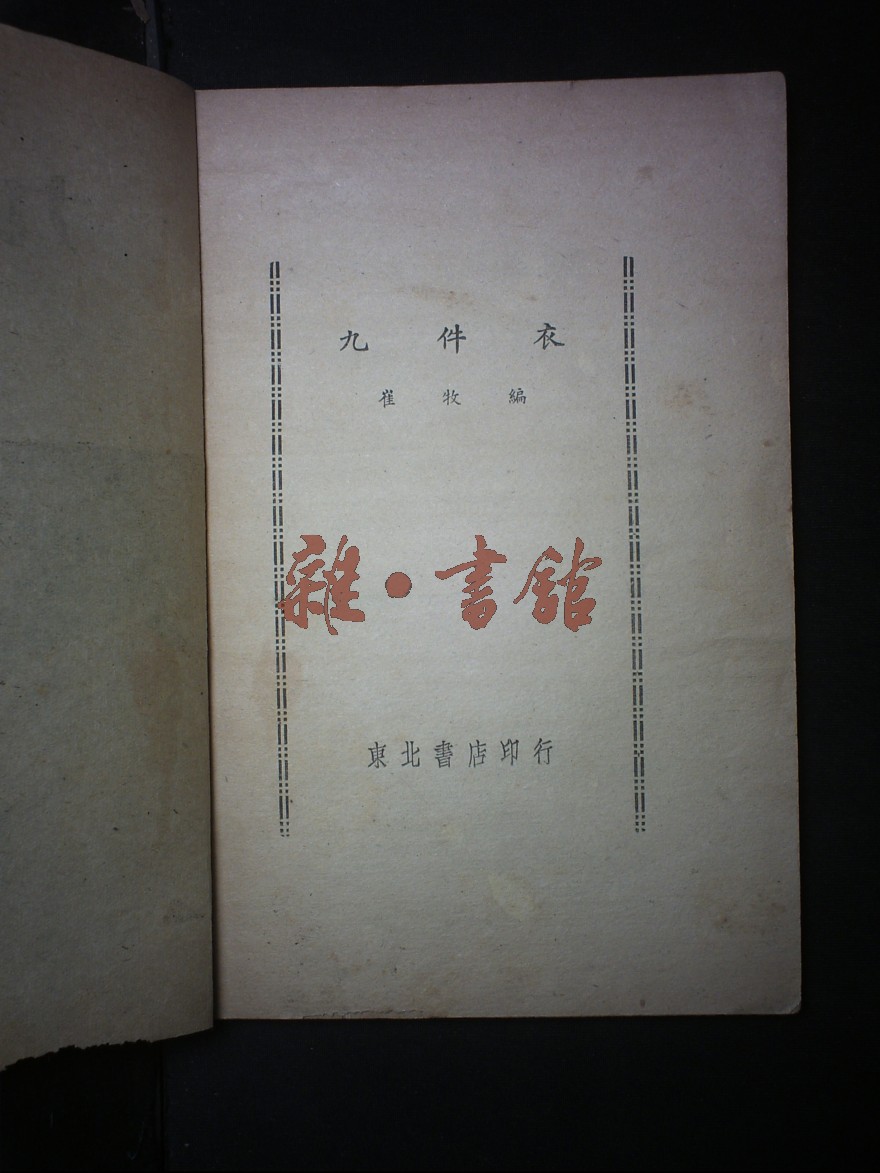 九件衣
崔牧編
雜·書館
東北書店印行